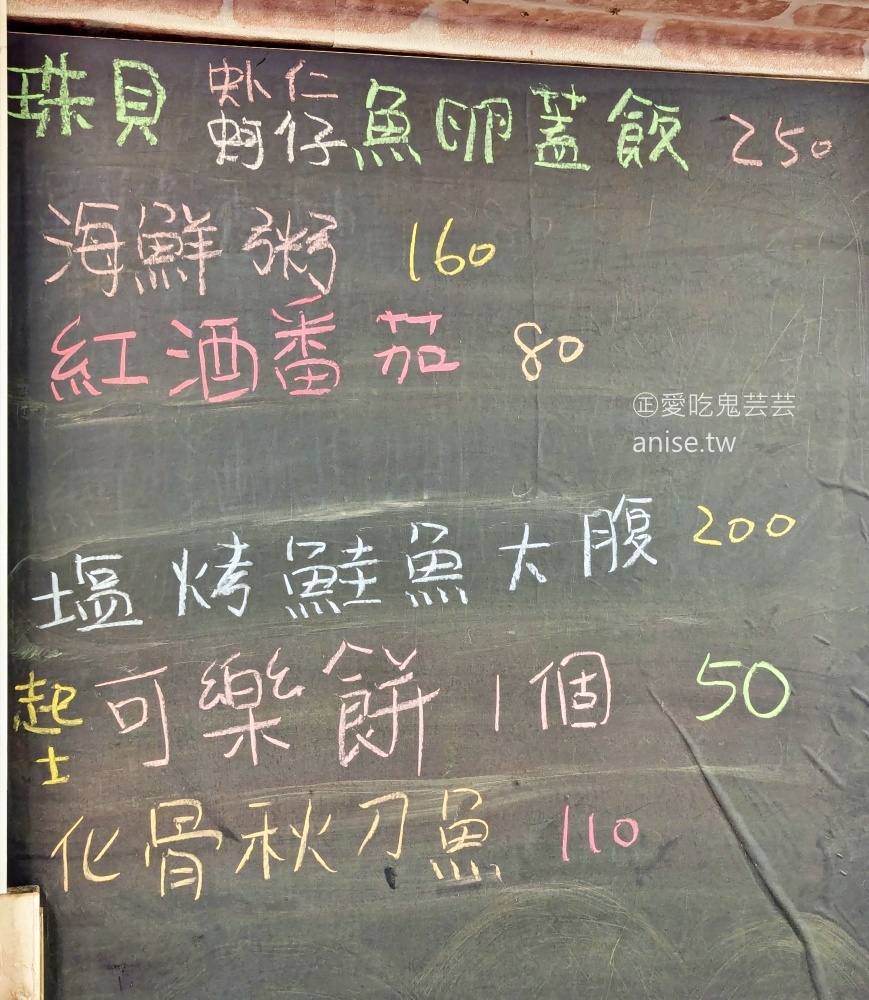 珠貝 虾仁 蚵仔 魚卵蓋飯 250
海鮮粥 160
紅酒番茄 80
㊣愛吃鬼芸芸
anise.tw
塩烤鮭魚大腹 200
起士可樂餅1個 50
化骨秋刀魚 110